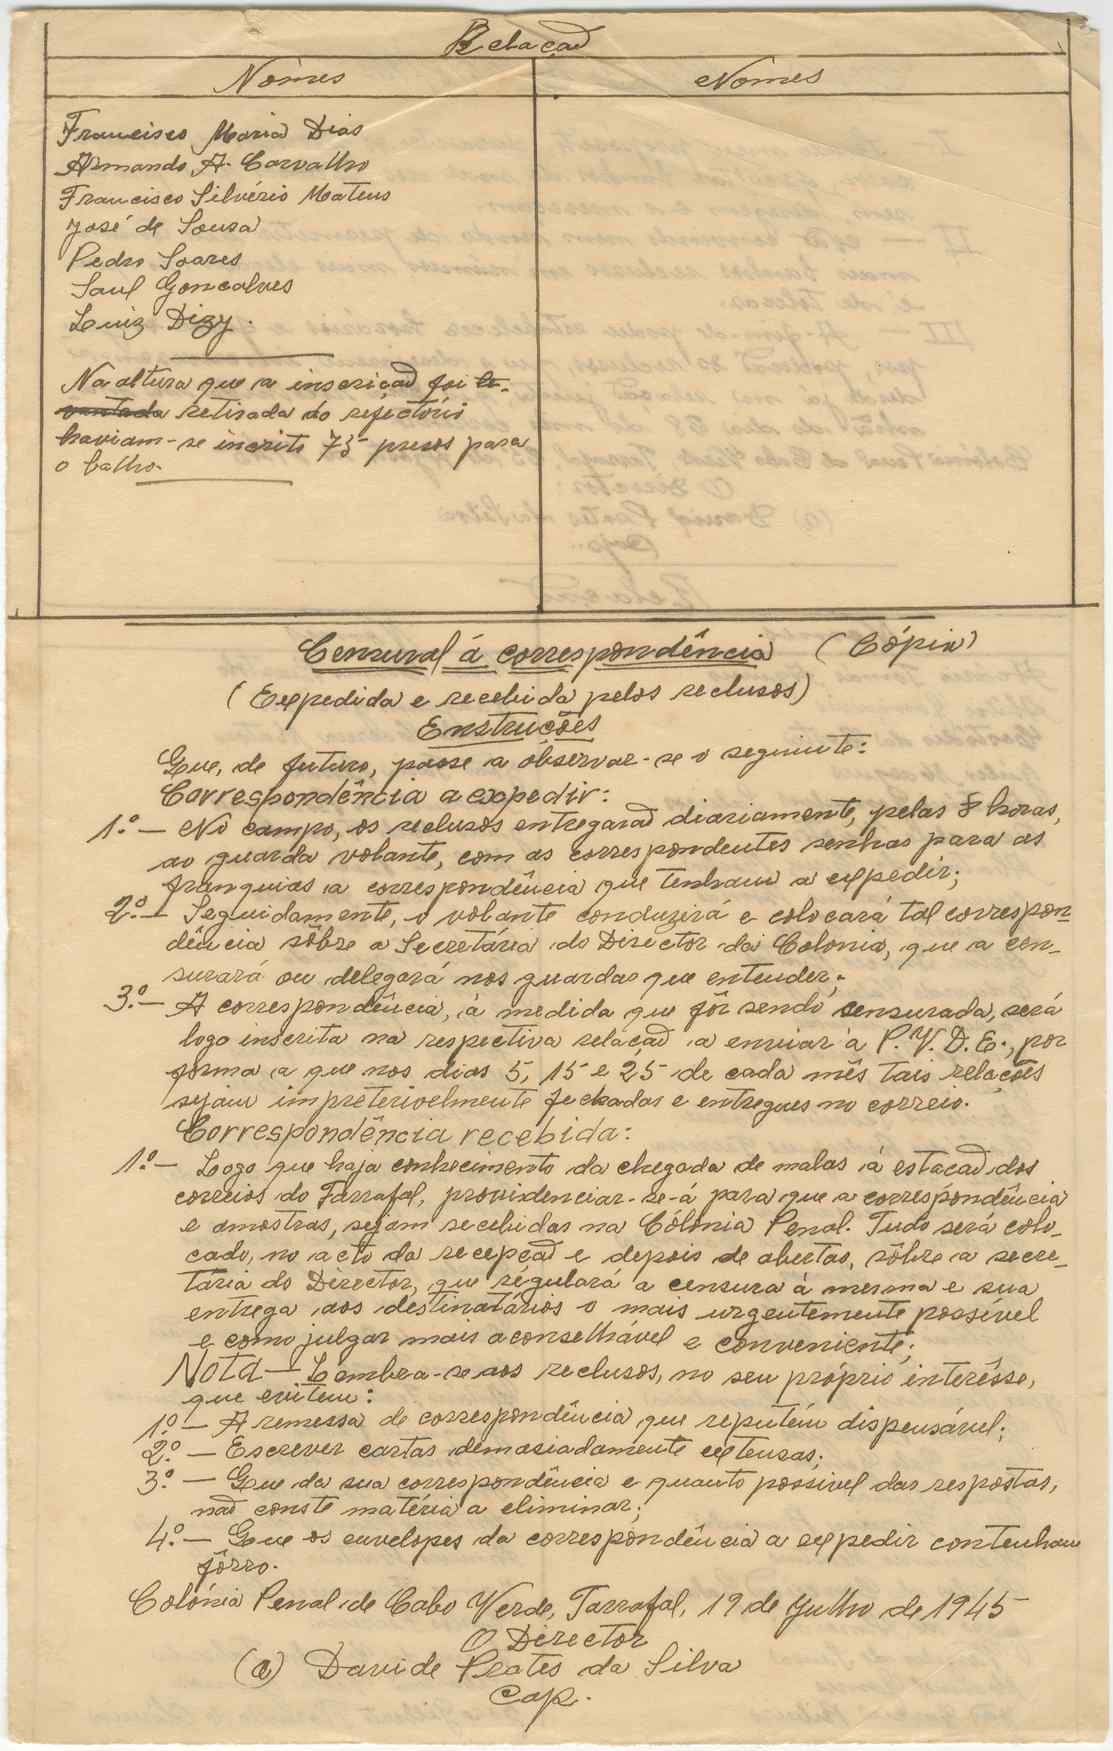 Relação
Nomes
Nomes
Francisco Maria Dias
Armando A. Carvalho
Francisco Silvério Mateus
José de Sousa
Pedro Soares
Saul Goncalves
Luiz Dizy.
Na altura que a inscrição foi le-
vantada retirada do refeitório
haviam-se inscrito 73 presos para
o talho.
Censural á correspondência (Cópia)
(Expedida e recebida pelos reclusos)
Enstruções
Que, de futuro, passe a óbservar-se o seguinte:
Correspondência a expedir:
1.º — No campo, os reclusos entregarão diariamente, pelas 8 horas,
ao guarda volante, com as correspondentes senhas para as
franquias a correspondência que tenham a expedir;
2.º — Seguidamente, o volante conduzirá e colocará tal correspon-
dência sôbre a Secretária do Director da Colonia, que a cen-
surará ou delegará nos guardas que entender;
3.º — A correspondência, á medida que fôr sendo censurada, será
logo inscrita na respectiva relação a enviar á P.V.D.E., por
forma a que nos dias 5, 15 e 25 de cada mês tais relacões
sejam impreterivelmente fechadas e entregues no correio.
Correspondência recebida:
1.º — Logo que haja conhecimento da chegada de malas á estação dos
correios do Tarrafal, providenciar-se-á para que a correspondência
e amostras, sejam recebidas na Cólónia Penal. Tudo será colo-
cado, no acto da recepção e depois de abertas, sôbre a secre-
tária do Director, que regulará a censura á mesma e sua
entrega aos destinatários o mais urgentemente possível
e como julgar mais aconselhável e conveniente;
Nota — Lembra-se aos reclusos, no seu próprio interêsse,
que evitem:
1.º — A remessa de correspondência que reputem dispensável;
2.º — Escrever cartas demasiadamente extensas;
3.º — Que da sua correspondência e quanto possivel das respostas,
não conste matéria a eliminar;
4.º — Que os envelopes da correspondência a expedir contenham
fôrro.
Colónia Penal de Cabo Verde, Tarrafal, 19 de Julho de 1945
O Director
(a) Davide Prates da Silva
Cap.